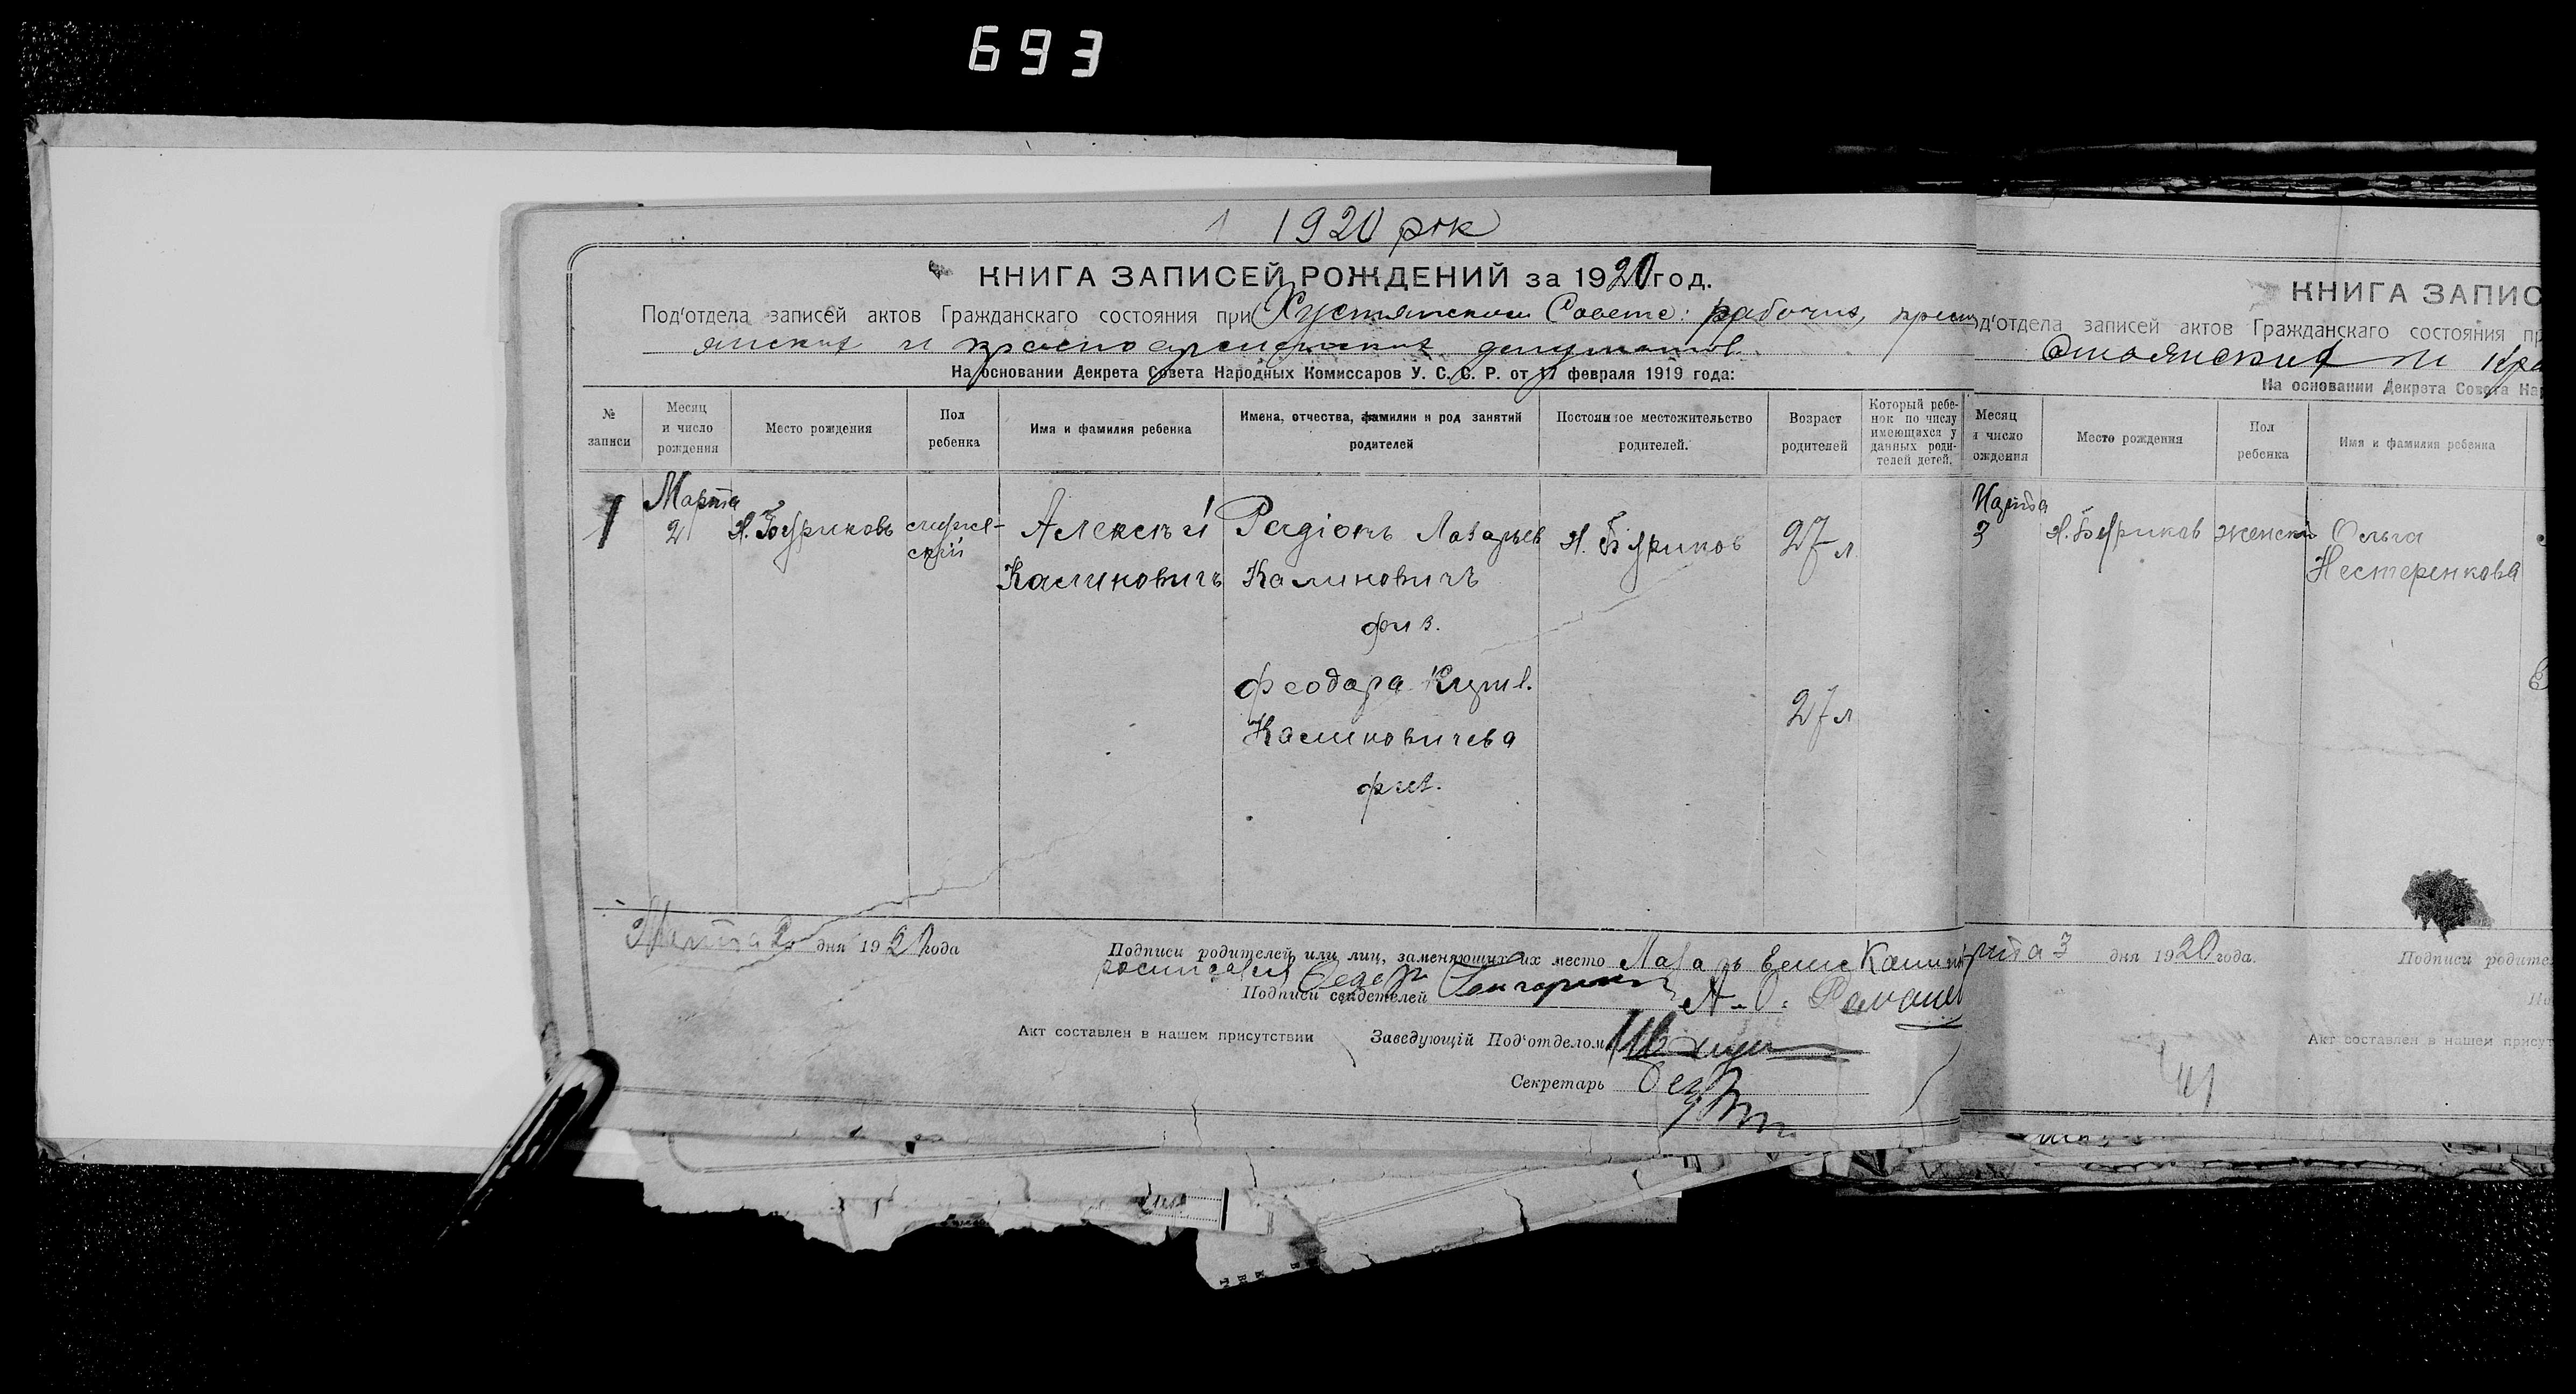 693
1 1920 рік
КНИГА ЗАПИСЕЙ РОЖДЕНИЙ за 1920 год.
Под'отдела записей актов Гражданскаго состояния при Хустянском Совете: рабочих, крест
янских и красноармейских депутатов
На основании Декрета Совета Народных Комиссаров У. С. С. Р. от 17 февраля 1919 года:
№ записи
Месяц и число рождения
Место рождения
Пол ребенка
Имя и фамилия ребенка
Имена, отчества, фамилии и род занятий родителей
Постоянное местожительство родителей.
Возраст родителей
Который ребенок по числу имеющихся у данных родителей детей.
1
Марта 2
х. Буриковъ
мужескій
Алексѣй Калиновичъ
Радіонъ Лазарьев
Калиновичъ
Феодора
Калиновичева
х. Буриков
27 л
27 л
Марта 2 дня 1920 года
Подписи родителей или лиц, заменяющих их место Лазарь
Подписи свидетелей
Акт составлен в нашем присутствии Заведующій Под'отделом
Секретарь
КНИГА ЗАПИС
од'отдела записей актов Гражданскаго состояния пр
стьянских и Кра
На основании Декрета Совета На
Месяц и число ождения
Место рождения
Пол ребенка
Имя и фамилия ребенка
Марта 3
х. Буриков
женск
Ольга
Нестеренкова
рта 3 дня 1920 года.
Подписи родите
Акт составлен в нашем присут